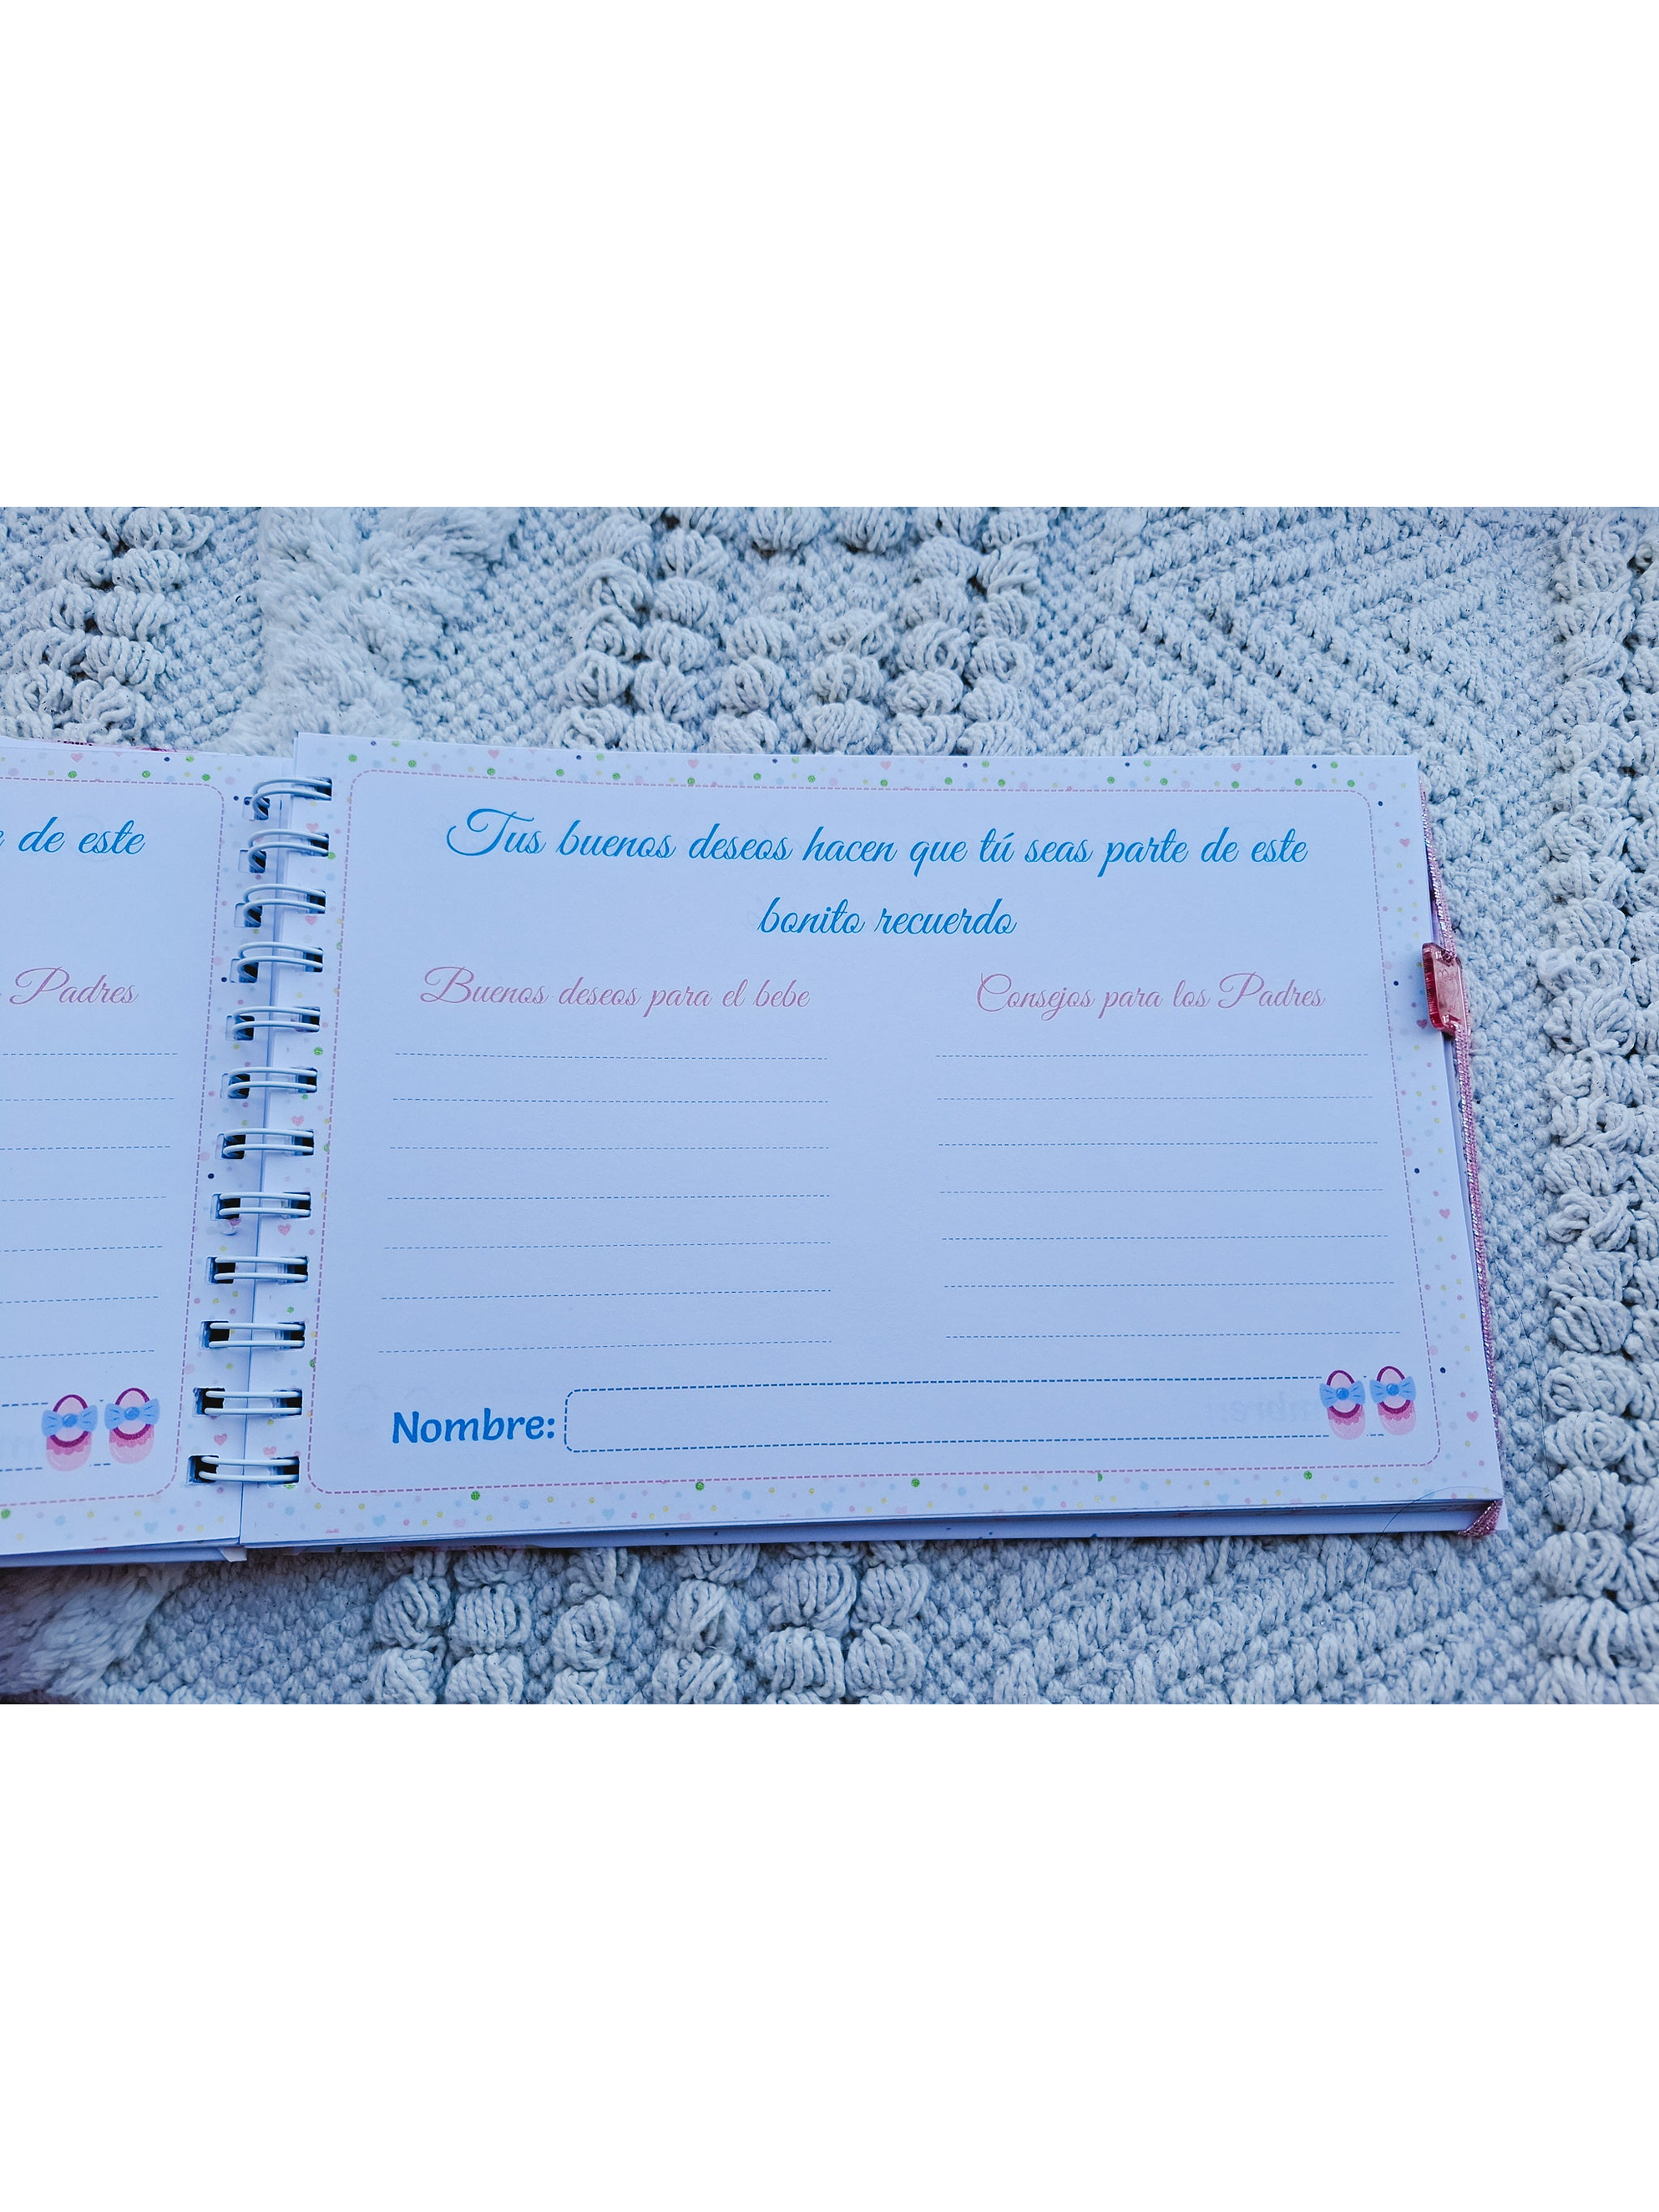 de este
Padres
Tus buenos deseos hacen que tú seas parte de este
bonito recuerdo
Buenos deseos para el bebe
Consejos para los Padres
Nombre: